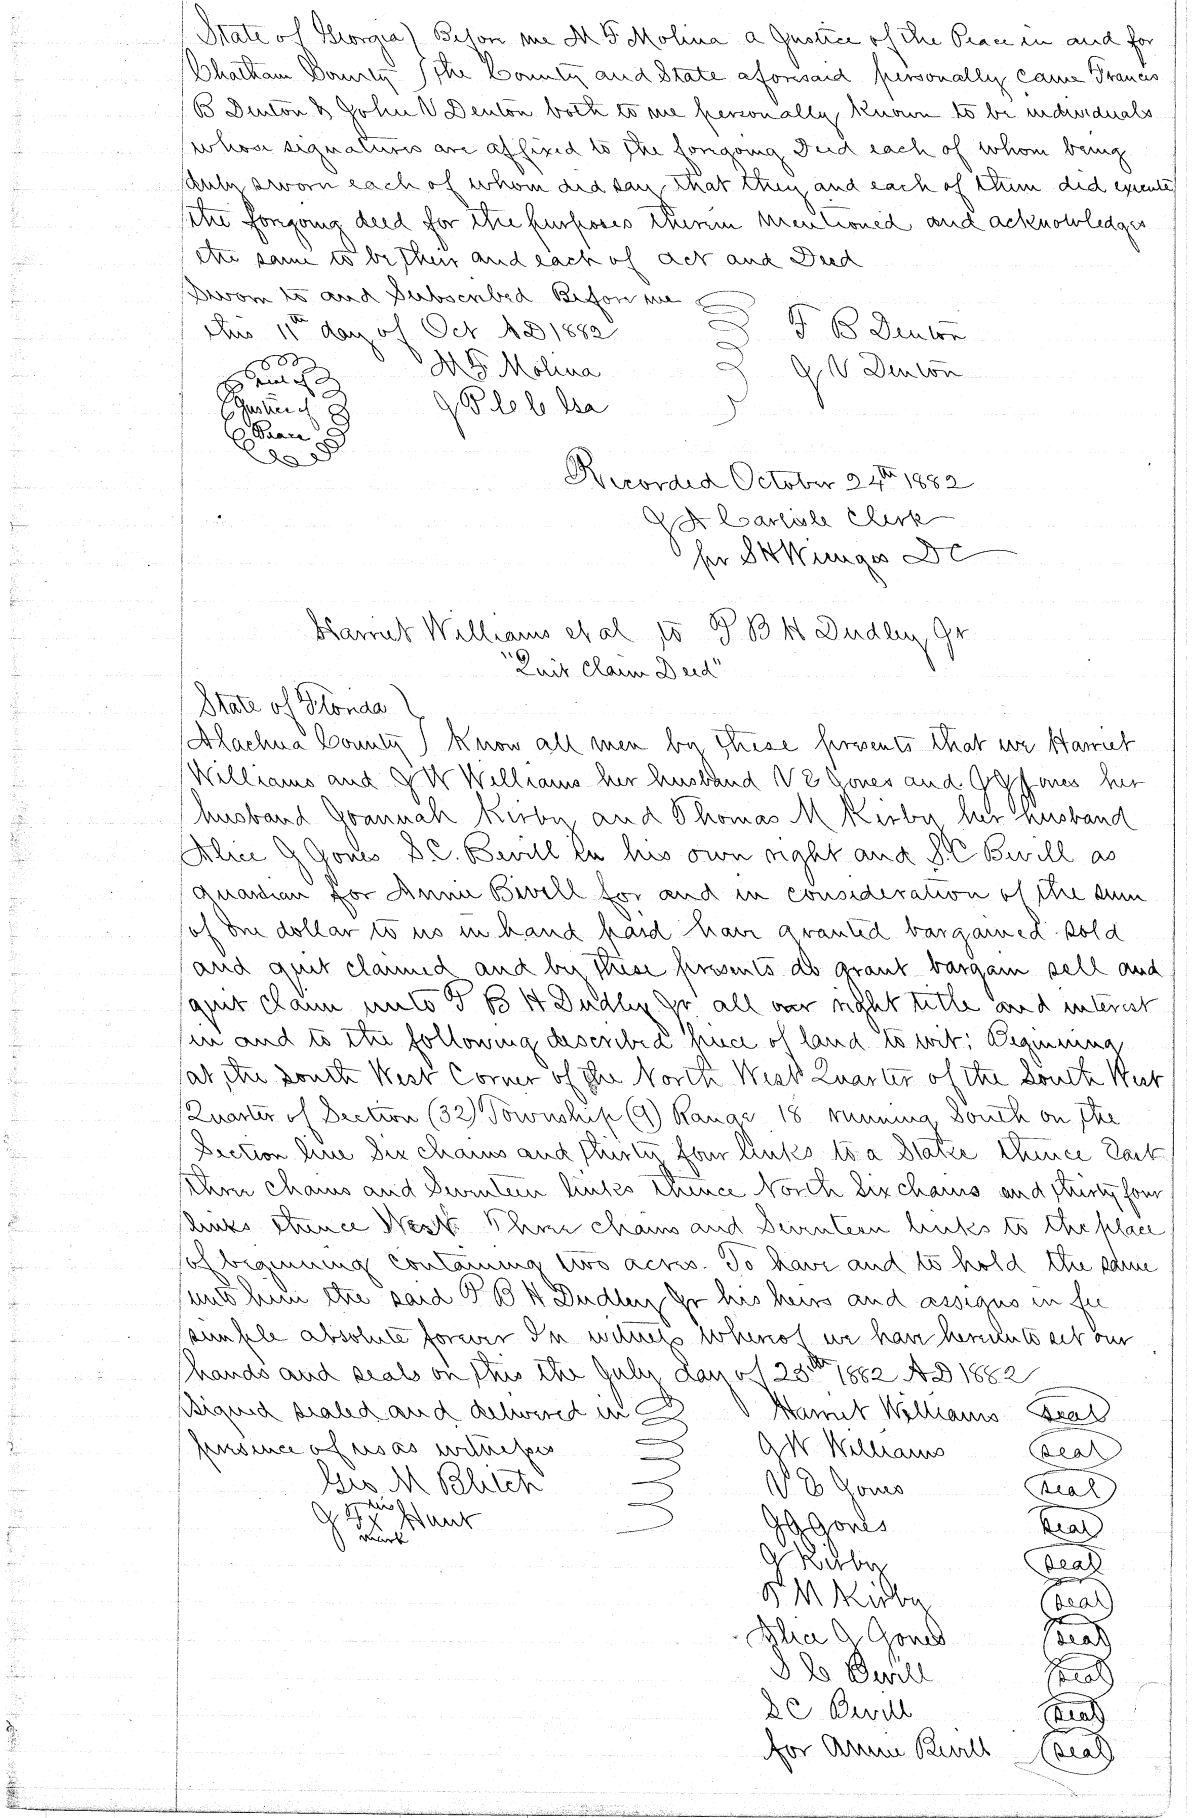 State of Georgia) Before me M F Molina a Justice of the Peace in and for
Chatham County ) the County and State aforesaid personally came Francis
B Denton & John V Denton both to me personally known to be individuals
whose signatures are affixed to the forgoing Deed each of whom being
duly sworn each of whom did say that they and each of them did execute
the forgoing deed for the purposes therein mentioned and acknowledges
the same to be their and each of act and Deed
Sworn to and Subscribed Before me
this 11th day of Oct AD 1882
F B Denton
M F Molina
J V Denton
J P C C Ga
Seal of
Justice of
Peace
Recorded October 24th 1882
J A Carlisle Clerk
per S H Wienges DC
Harriet Williams et al to P B H Dudley Jr
"Quit Claim Deed"
State of Florida )
Alachua County ) Know all men by these presents that we Harriet
Williams and J W Williams her husband V E Jones and J G Jones her
husband Joannah Kirby and Thomas M Kirby her husband
Alice J Jones S.C. Bevill in his own right and S.C Bevill as
guardian for Annie Bevill for and in consideration of the sum
of one dollar to us in hand paid have granted bargained sold
and quit claimed and by these presents do grant bargain sell and
quit claim unto P B H Dudley Jr all our right title and interest
in and to the following described piece of land to wit: Beginning
at the South West Corner of the North West Quarter of the South West
Quarter of Section (32) Township (9) Range 18 running South on the
Section line Six chains and thirty four links to a Stake thence East
three chains and Seventeen links thence North Six chains and thirty four
links thence West Three chains and Seventeen links to the place
of beginning containing two acres. To have and to hold the same
unto him the said P B H Dudley Jr his heirs and assigns in fee
simple absolute forever In witness whereof we have hereunto set our
hands and seals on this the July day of 25th 1882 AD 1882
Signed sealed and delivered in
Harriet Williams seal
presence of us as witnesses
J W Williams seal
Geo M Blitch
V E Jones seal
J F his x mark Hunt
J G Jones seal
J Kirby seal
T M Kirby seal
Alice J Jones seal
S C Bevill seal
S C Bevill seal
for Annie Bevill seal